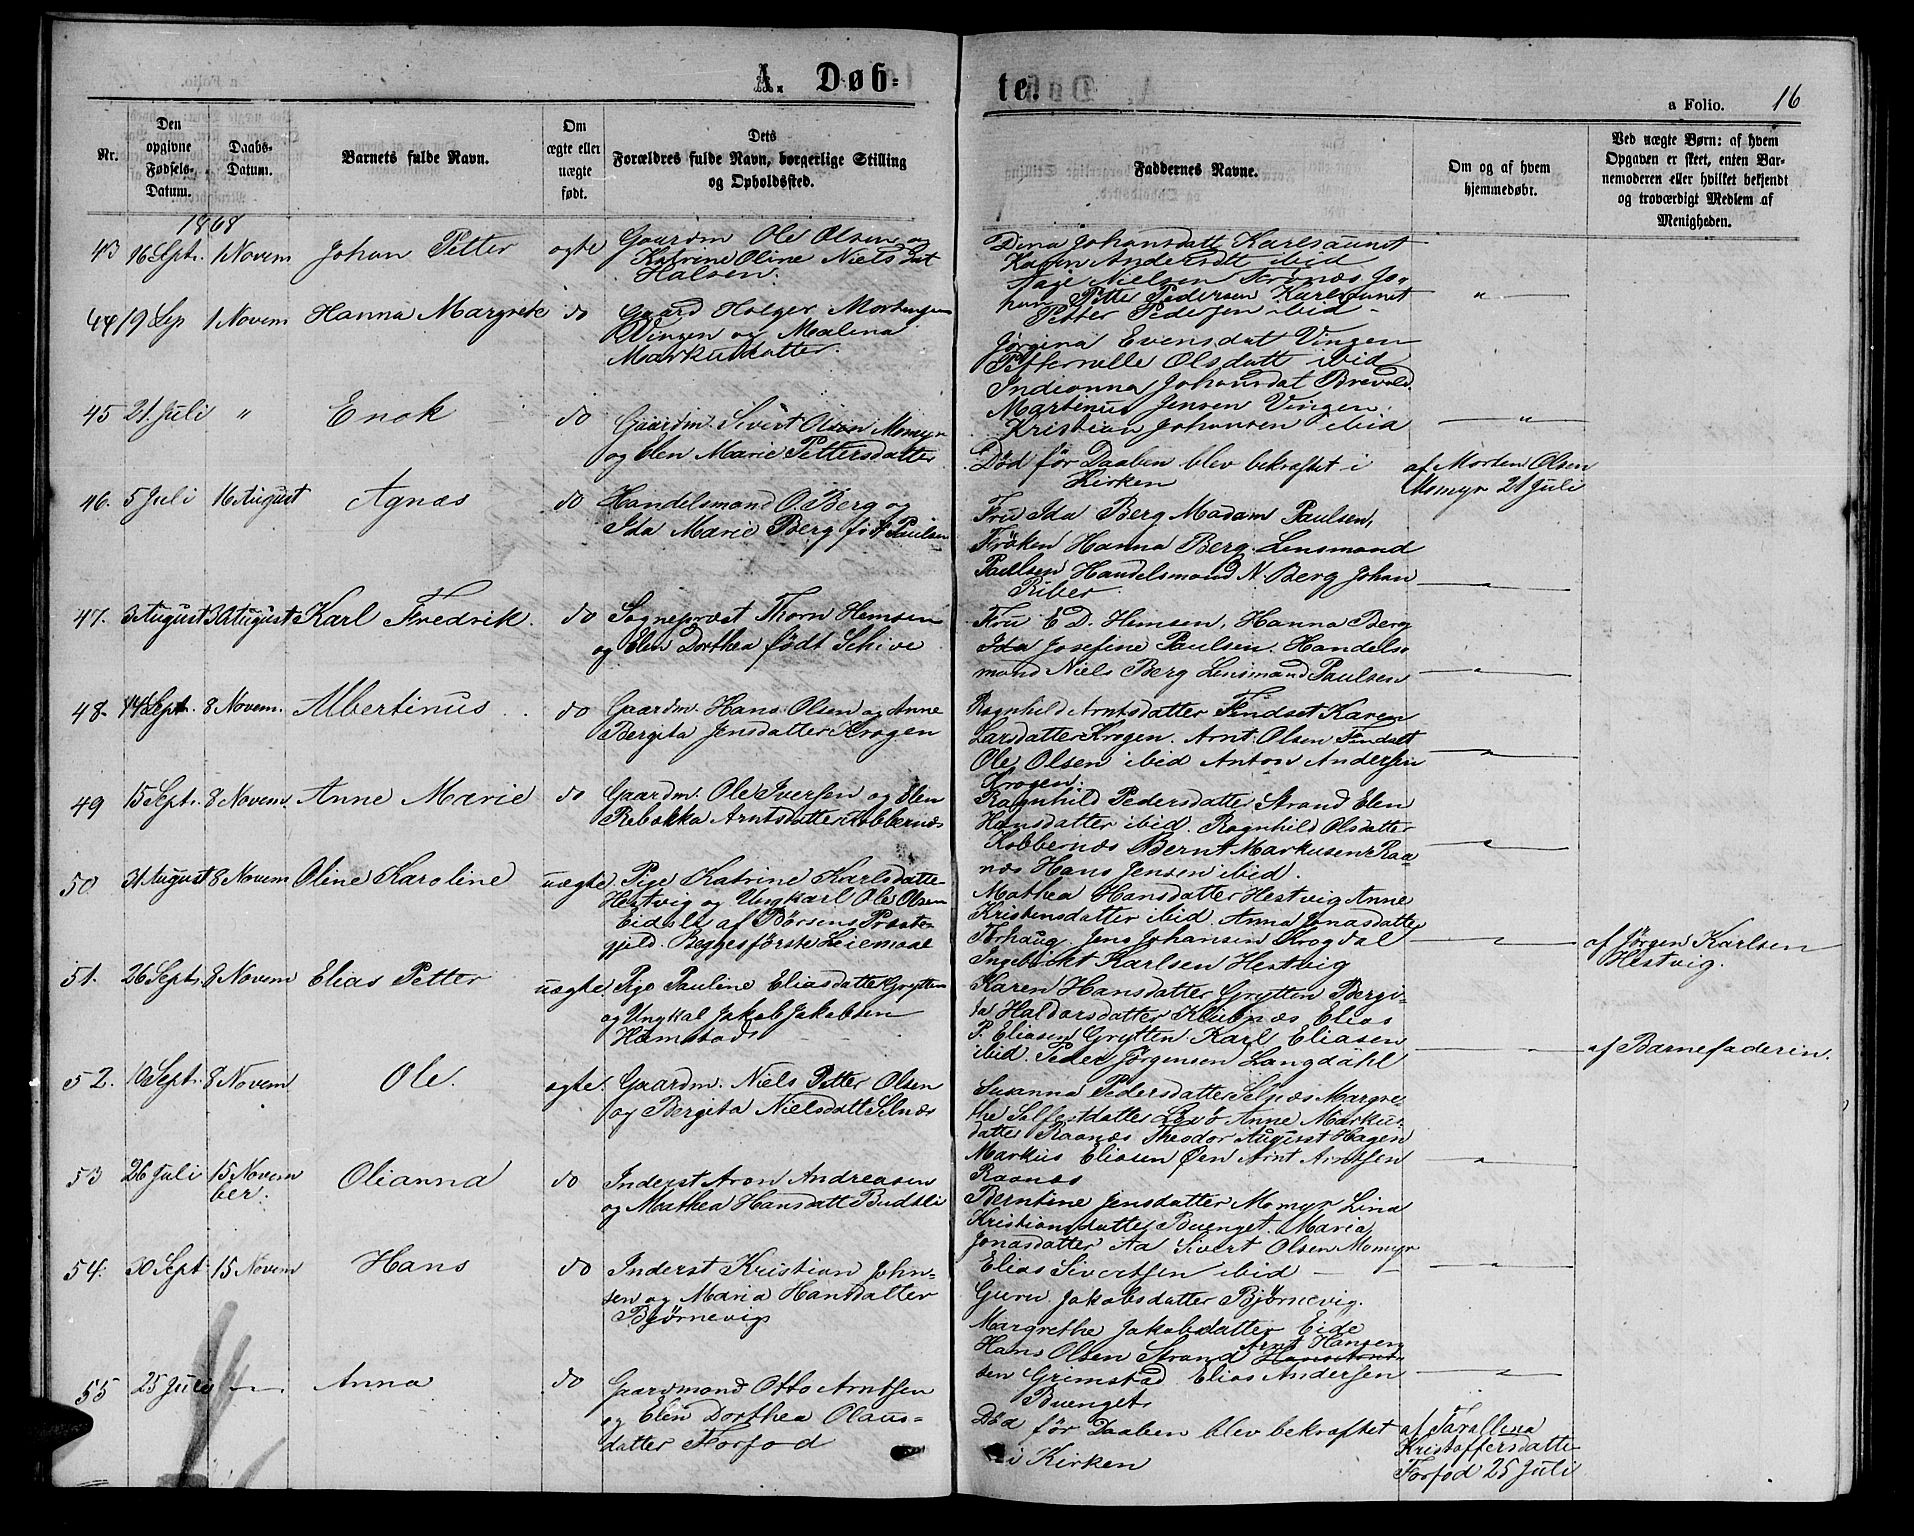 A. Døbte.
a Folio. 16
Nr.
Den opgivne Fødsels-Datum.
Daabs-Datum.
Barnets fulde Navn.
Om ægte eller uægte født.
Dets Forældres fulde Navn, borgerlige Stilling og Opholdssted.
Faddernes Navne.
Om og af hvem hjemmedøbt.
Ved uægte Børn: af hvem Opgaven er skeet, enten Barnemoderen eller hvilket bekjendt og troværdigt Medlem af Menigheden.
1868
43 16 Sept. 1 Novem Johan Petter ægte Gaardm Ole Olsen og
Katrine Oline Niels dat
Halsen.
Dina Johansdatt Karlsaunet
Karen Andersdt ibid
Aage Nielsen Terønæs Jo-
han Petter Pedersen Karlsaunet
Petter Pedersen ibid
44 19 Sep 1 Novem Hanna Margrete do Gaard Holger Mortensen
Vingen og Malena
Markusdatter.
Jørgina Evensdat Vingen
Petternelle Olsdatt ibid
Indianna Johansdat Brevold
Martinus Jensen Vingen.
Kristian Johansen ibid
45 21. Juli " Enok do Gaardm. Sivert Olsen Momyr
og Elen Marie Pettersdatter
Død før Daaben blev bekræftet i
Kirken
af Morten Olsen
Momyr 21 Juli
46. 5 Juli 16 August Agnæs do Handelsmand O. Berg og
Ida Marie Berg født Paulsen
Fru Ida Berg Madam Paulsen,
Frøken Hanna Berg. Lensmand
Paulsen Handelsmand N. Berg Johan
Riber
47. 3 August 30 August Karl Fredrik. do Sognepræst Thorn Hemsen
og Elen Dorthea født Schive
Fru E D. Hemsen, Hanna Berg
Ida Josefine Paulsen. Handels-
mand Niels Berg Lensmand Paulsen
48. 14 Sept. 8 Novem. Albertinus do Gaardm. Hans Olsen og Anne
Bergita Jensdatter Krogen
Ragnhild Arntsdatter Findset Karen
Larsdatter Krogen. Arnt Olsen Findset
Ole Olsen ibid Anton Andersen
Krogen.
49 15 Sept. 8 Novem. Anne Marie do Gaardm. Ole Iversen og Elen
Rebekka Arntsdatter Kobbernæs
Ragnhild Pedersdatter Strand Elen
Hansdatter ibid. Ragnhild Olsdatter
Kobbernæs Bernt Markusen Raa-
næs Hans Jensen ibid.
50 31 August 8 Novem Oline Karoline uægte Pige Katrine Karlsdatter
Hestvig og Ungkarl Ole Olsen
Eidsli af Børsens Præste-
gjeld. Begges første Leiemaal
Mathea Hansdatter Hestvig Anne
Kristensdatter ibid. Anna Jonasdatter
Torhaug. Jens Johansen Krogdal
Ingebrikt Karlsen Hestvig
af Jørgen Karlsen
Hestvig.
51. 26 Sept. 8 Novem Elias Petter uægte Pige Pauline Eliasdatter Grytten
og Ungkal Jakob Jakobsen
Hamstad
Karen Hansdatter Grytten Bergi-
ta Haldorsdatter Klubnæs Elias
P. Eliasen Grytten. Karl Eliasen
ibid. Peder Jørgensen Langdahl
af Barnefaderin.
52. 10 Sept. 8 Novem Ole. ægte Gaardm. Niels Petter Olsen
og Bergita Nielsdatt Selnæs
Susanna Pedersdatter Selnæs Margre-
the Salfestdatter Lexø Anne Markus-
datter Raanæs Theodor August Hagen
Markus Eliasen Øen Arnt Arntsen
Raanæs
53 26 Juli 15 Novem
ber.
Olianna do Inderst Aron Andreasen
og Mathea Hansdatt Budsli
Berntine Jensdatter Momyr Lina
Kristiansdatter Buenget. Maria
Jonasdatter Aa Sivert Olsen Momyr
Elias Sivertsen ibid
54. 30 Sept 15 Novem Hans do Inderst Kristian John-
sen og Maria Hansdatter
Bjørnevig
Guru Jakobsdatter Bjørnevig.
Margrethe Jakobsdatter Eide
Hans Olsen Strand Arnt Hansen
sen Grimstad Elias Andersen
Buenget
55 25 Juli Anna do Gaardmand Otto Arntsen
og Elen Dorthea Olaus-
datter Forfod
Død før Daaben blev bekræftet
i Kirken
af Tarallena
Kristoffersdatter
Forfod 25 Juli